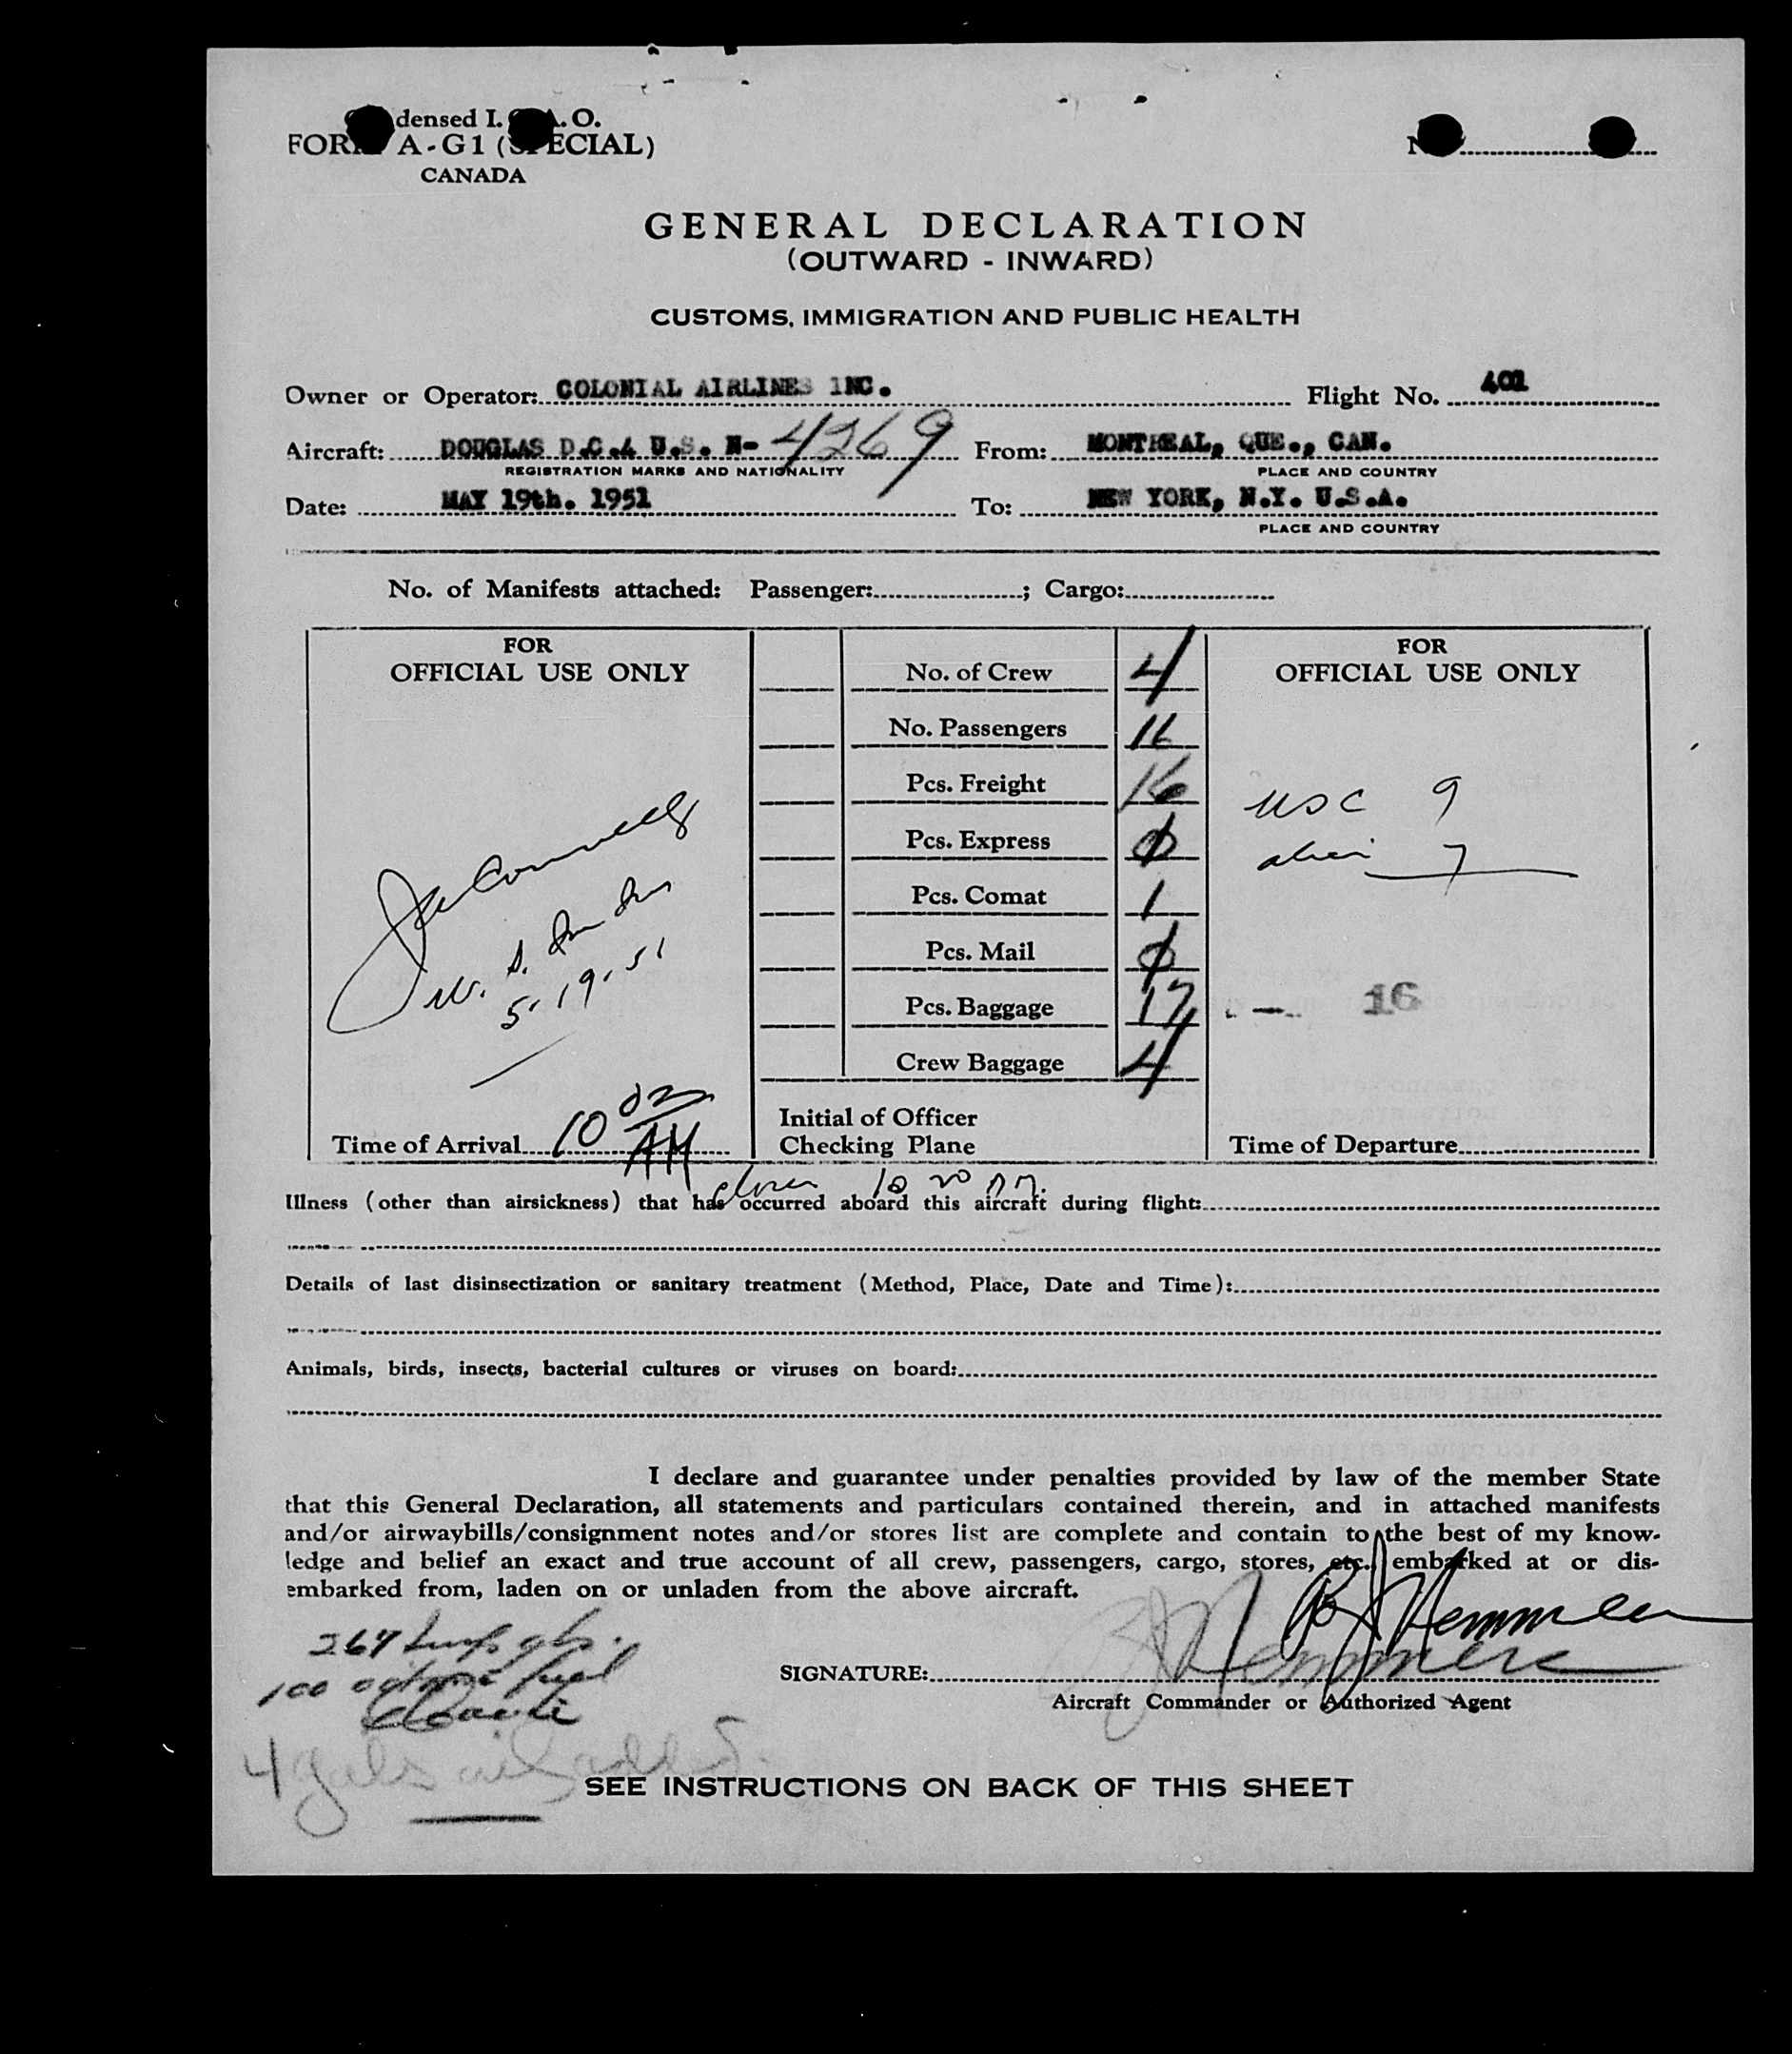 densed I. A.O.
FORM A-G1 (SPECIAL)
CANADA
GENERAL DECLARATION
(OUTWARD - INWARD)
CUSTOMS, IMMIGRATION AND PUBLIC HEALTH
Owner or Operator: COLONIAL AIRLINES INC. Flight No. 401
Aircraft: DOUGLAS D.C.4 U.S. N- 4269 From: MONTREAL, QUE., CAN.
REGISTRATION MARKS AND NATIONALITY PLACE AND COUNTRY
Date: MAY 19th. 1951 To: NEW YORK, N.Y. U.S.A.
PLACE AND COUNTRY
No. of Manifests attached: Passenger: ; Cargo:
FOR
OFFICIAL USE ONLY
5.19.51
Time of Arrival 10 02 AM
No. of Crew 4
No. Passengers 16
Pcs. Freight 16
Pcs. Express 0
Pcs. Comat 1
Pcs. Mail 0
Pcs. Baggage 17
Crew Baggage 4
Initial of Officer
Checking Plane
FOR
OFFICIAL USE ONLY
USC 9
alien 7
- 16
Time of Departure
10 20 AM.
Illness (other than airsickness) that has occurred aboard this aircraft during flight:
Details of last disinsectization or sanitary treatment (Method, Place, Date and Time):
Animals, birds, insects, bacterial cultures or viruses on board:
I declare and guarantee under penalties provided by law of the member State
that this General Declaration, all statements and particulars contained therein, and in attached manifests
and/or airwaybills/consignment notes and/or stores list are complete and contain to the best of my know-
ledge and belief an exact and true account of all crew, passengers, cargo, stores, etc. embarked at or dis-
embarked from, laden on or unladen from the above aircraft.
267 gls.
100 octane fuel
4 gals oil added
SIGNATURE:
Aircraft Commander or Authorized Agent
SEE INSTRUCTIONS ON BACK OF THIS SHEET